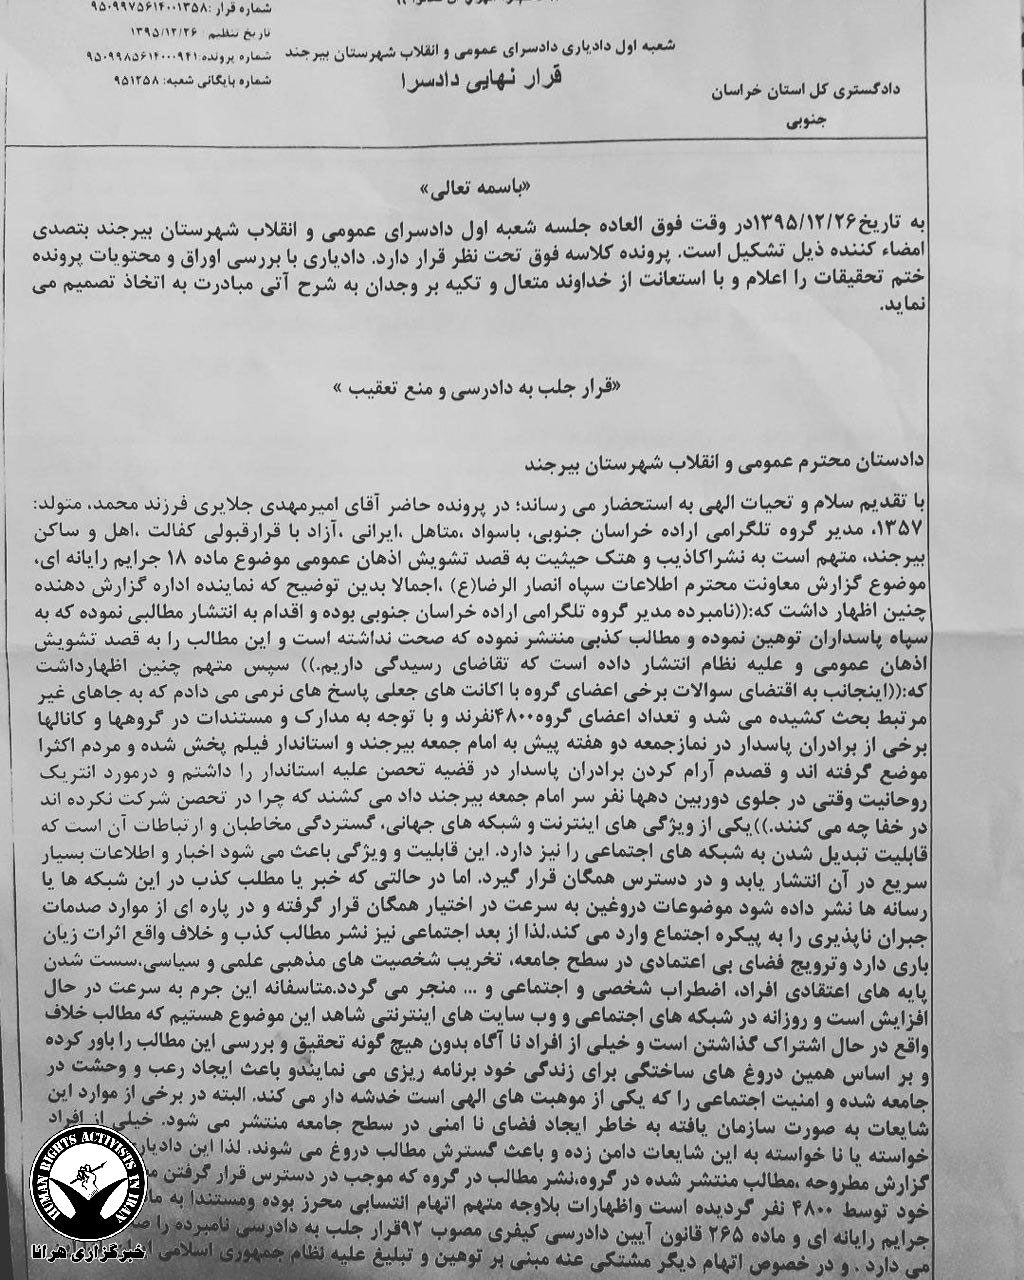 شماره قرار :۹۵۰۹۹۷۵۶۱۴۰۰۱۳۵۸
تاریخ تنظیم : ۱۳۹۵/۱۲/۲۶
شماره پرونده:۹۵۰۹۹۸۵۶۱۴۰۰۰۹۴۱
شماره بایگانی شعبه: ۹۵۱۲۵۸
شعبه اول دادیاری دادسرای عمومی و انقلاب شهرستان بیرجند
قرار نهایی دادسرا
دادگستری کل استان خراسان
جنوبی
«باسمه تعالی»
به تاریخ۱۳۹۵/۱۲/۲۶در وقت فوق العاده جلسه شعبه اول دادسرای عمومی و انقلاب شهرستان بیرجند بتصدی
امضاء کننده ذیل تشکیل است. پرونده کلاسه فوق تحت نظر قرار دارد. دادیاری با بررسی اوراق و محتویات پرونده
ختم تحقیقات را اعلام و با استعانت از خداوند متعال و تکیه بر وجدان به شرح آتی مبادرت به اتخاذ تصمیم می
نماید.
«قرار جلب به دادرسی و منع تعقیب »
دادستان محترم عمومی و انقلاب شهرستان بیرجند
با تقدیم سلام و تحیات الهی به استحضار می رساند؛ در پرونده حاضر آقای امیرمهدی جلایری فرزند محمد، متولد:
۱۳۵۷، مدیر گروه تلگرامی اراده خراسان جنوبی، باسواد ،متاهل ،ایرانی ،آزاد با قرارقبولی کفالت ،اهل و ساکن
بیرجند، متهم است به نشراکاذیب و هتک حیثیت به قصد تشویش اذهان عمومی موضوع ماده ۱۸ جرایم رایانه ای،
موضوع گزارش معاونت محترم اطلاعات سپاه انصار الرضا(ع) ،اجمالا بدین توضیح که نماینده اداره گزارش دهنده
چنین اظهار داشت که:((نامبرده مدیر گروه تلگرامی اراده خراسان جنوبی بوده و اقدام به انتشار مطالبی نموده که به
سپاه پاسداران توهین نموده و مطالب کذبی منتشر نموده که صحت نداشته است و این مطالب را به قصد تشویش
اذهان عمومی و علیه نظام انتشار داده است که تقاضای رسیدگی داریم.)) سپس متهم چنین اظهارداشت
که:((اینجانب به اقتضای سوالات برخی اعضای گروه با اکانت های جعلی پاسخ های نرمی می دادم که به جاهای غیر
مرتبط بحث کشیده می شد و تعداد اعضای گروه۴۸۰۰نفرند و با توجه به مدارک و مستندات در گروهها و کانالها
برخی از برادران پاسدار در نمازجمعه دو هفته پیش به امام جمعه بیرجند و استاندار فیلم پخش شده و مردم اکثرا
موضع گرفته اند و قصدم آرام کردن برادران پاسدار در قضیه تحصن علیه استاندار را داشتم و درمورد انتریک
روحانیت وقتی در جلوی دوربین دهها نفر سر امام جمعه بیرجند داد می کشند که چرا در تحصن شرکت نکرده اند
در خفا چه می کنند.))یکی از ویژگی های اینترنت و شبکه های جهانی، گستردگی مخاطبان و ارتباطات آن است که
قابلیت تبدیل شدن به شبکه های اجتماعی را نیز دارد. این قابلیت و ویژگی باعث می شود اخبار و اطلاعات بسیار
سریع در آن انتشار یابد و در دسترس همگان قرار گیرد. اما در حالتی که خبر یا مطلب کذب در این شبکه ها یا
رسانه ها نشر داده شود موضوعات دروغین به سرعت در اختیار همگان قرار گرفته و در پاره ای از موارد صدمات
جبران ناپذیری را به پیکره اجتماع وارد می کند.لذا از بعد اجتماعی نیز نشر مطالب کذب و خلاف واقع اثرات زیان
باری دارد وترویج فضای بی اعتمادی در سطح جامعه، تخریب شخصیت های مذهبی علمی و سیاسی،سست شدن
پایه های اعتقادی افراد، اضطراب شخصی و اجتماعی و ... منجر می گردد.متاسفانه این جرم به سرعت در حال
افزایش است و روزانه در شبکه های اجتماعی و وب سایت های اینترنتی شاهد این موضوع هستیم که مطالب خلاف
واقع در حال اشتراک گذاشتن است و خیلی از افراد نا آگاه بدون هیچ گونه تحقیق و بررسی این مطالب را باور کرده
و بر اساس همین دروغ های ساختگی برای زندگی خود برنامه ریزی می نمایندو باعث ایجاد رعب و وحشت در
جامعه شده و امنیت اجتماعی را که یکی از موهبت های الهی است خدشه دار می کند. البته در برخی از موارد این
شایعات به صورت سازمان یافته به خاطر ایجاد فضای نا امنی در سطح جامعه منتشر می شود. خیلی از افراد
خواسته یا نا خواسته به این شایعات دامن زده و باعث گسترش مطالب دروغ می شوند. لذا این
گزارش مطروحه ،مطالب منتشر شده در گروه،نشر مطالب در گروه که موجب در دسترس قرار گرفتن
خود توسط ۴۸۰۰ نفر گردیده است واظهارات بلاوجه متهم اتهام انتسابی محرز بوده ومستندا به
جرایم رایانه ای و ماده ۲۶۵ قانون آیین دادرسی کیفری مصوب ۹۲قرار جلب به دادرسی نامبرده را
می دارد . و در خصوص اتهام دیگر مشتکی عنه مبنی بر توهین و تبلیغ علیه نظام جمهوری اسلامی
HUMAN RIGHTS ACTIVISTS IN IRAN
خبرگزاری هرانا